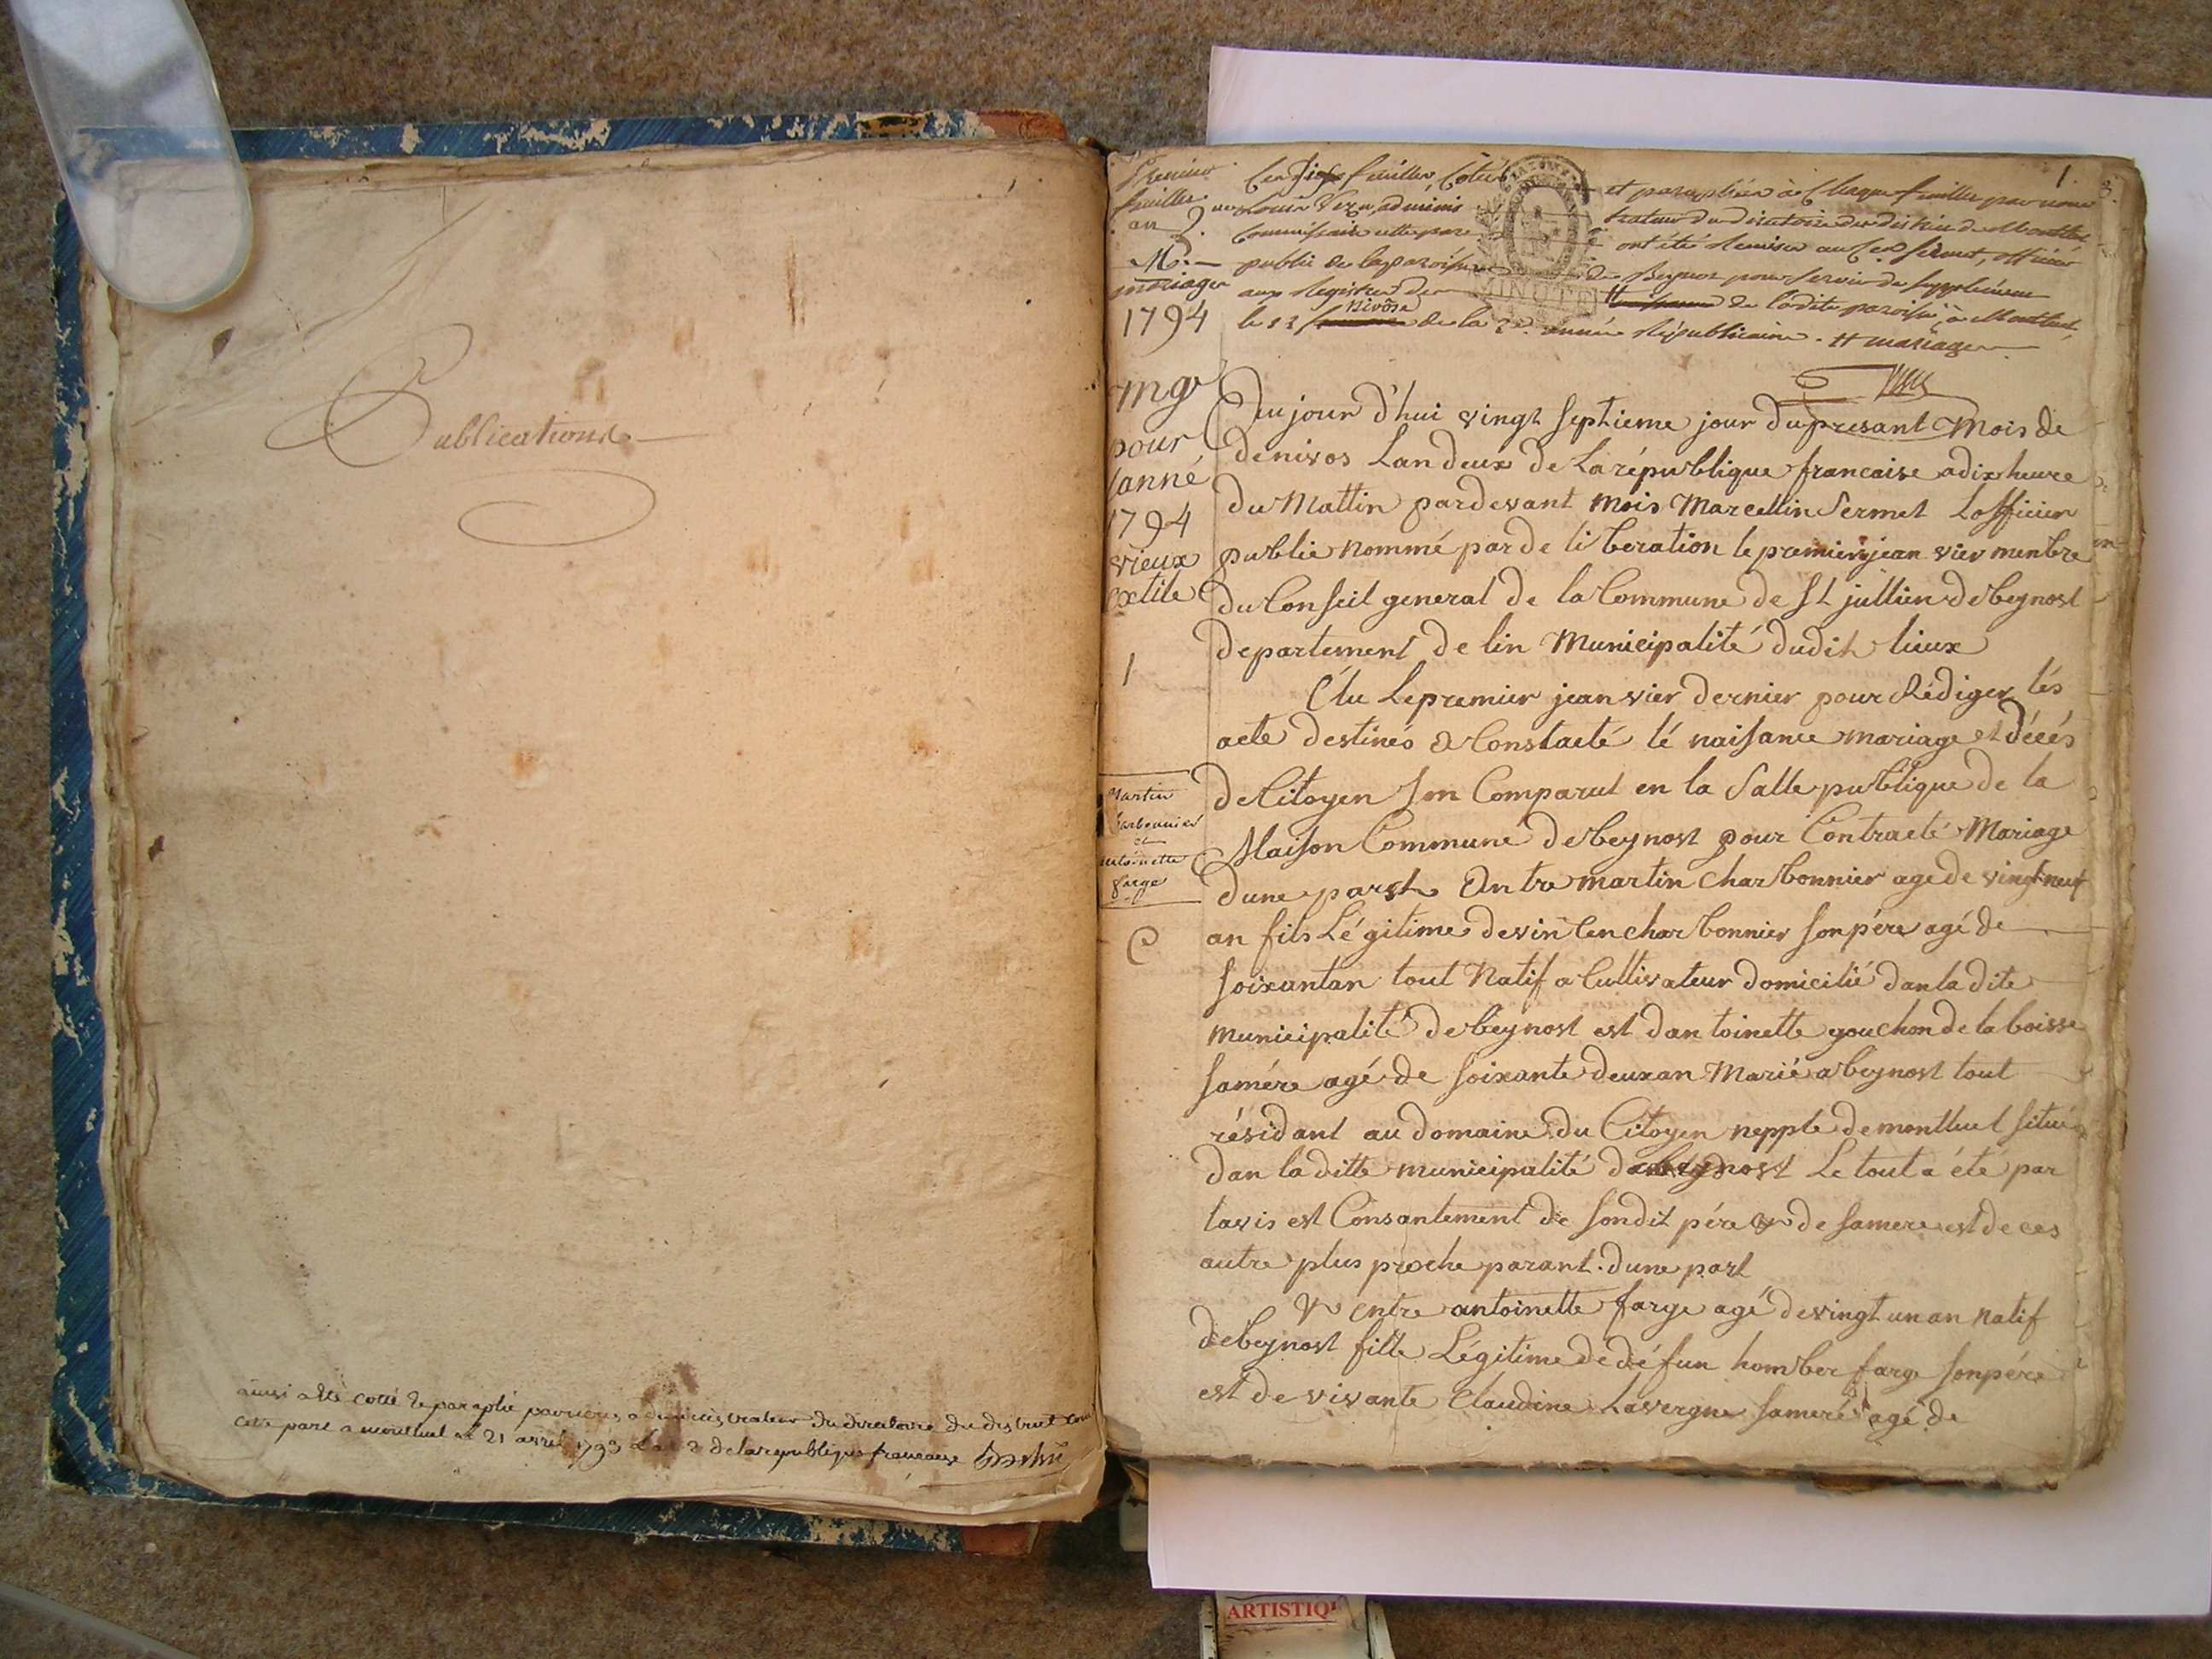 Publications
ainsi a été cotté & paraphé par nous administrateur du directoire du district
cette part a montluel le 21 avril 1793 l'an 2 de la republique francaise
Premier
feuillet
an 2.
M.
mariages
1794
1.
Ces dix feuilles, cotées et paraphées à Chaque feuille par nous
Louis adminis trateur du directoire du district de Montluel
Commissaire cette part ont été remises au Cen. Sermet, officier
public de la paroisse de Beynost pour servir de supplément
aux registres des de ladite paroisse, à Montluel,
Nivôse
le 13 de la 2e. année Républicaine. # mariages
MINUTE
mg
pour
lanné
1794
vieux
extile
1
Martin
Charbonnier
et
antoinette
farge
C
Aujour d'hui vingt septieme jour du presant Mois de
denivos Lan deux de La république francaise a dix heure
du Mattin pardevant mois Marcellin Sermet Lofficier
publie nommé par de li beration le premier jean vier menbre
du Conseil general de la Commune de St jullien de beynost
departement de lin Municipalité dudit lieux
Élu Le premier jean vier dernier pour Rédiger lés
acte destinés a Constaté lé naisance mariage et décés
de Citoyen son Comparut en la Salle publique de la
Maison Commune de beynost pour Contracté Mariage
dune part Antre martin charbonnier age de vingt neuf
an fils Légitime de vin Cen charbonnier son pére agé de
soixantan tout Natif a Cultivateur domicilié dan la dite
municipalité de beynost est dan toinette gouchon de la boisse
samére agé de soixante deux an Marié a beynost tout
résidant au domaine du Citoyen nepple de montluel situé
dan la ditte municipalité de beynost Le tout a été par
lavis est Consantement de sondit pére & de samere est de ces
autre plus proche parant. dune part
& entre antoinette farge agé de vingt un an natif
de beynost fille Légitime de défun homber farge son pére
est de vivante Claudine Lavergne sameré agé de
ARTISTIQ